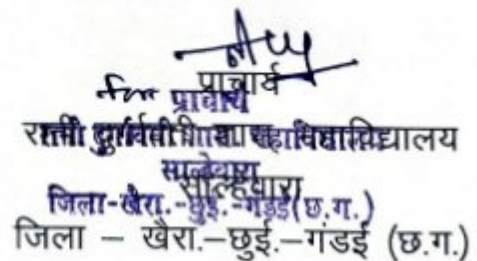 प्राचार्य
प्राचार्य
रानी दुर्गावती शास. महाविद्यालय
साल्हेवारा
साल्हेवारा
जिला-खैरा.-छुई.-गंडई(छ.ग.)
जिला – खैरा.–छुई.–गंडई (छ.ग.)